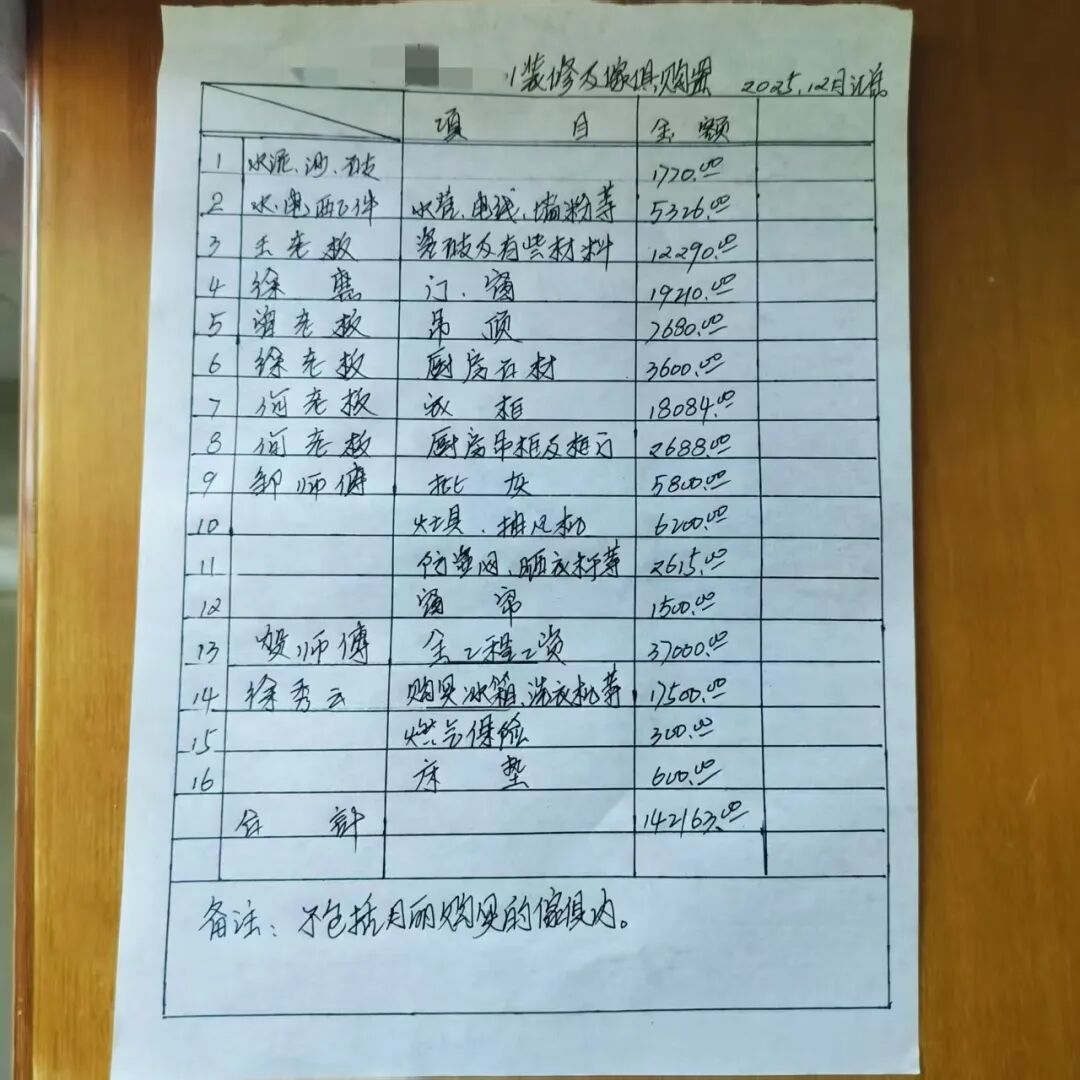 装修及傢俱购置 2025.12月汇总
项 目 金 额
1 水泥、沙、砖 1770.00
2 水、电配件 水管、电线、墙粉等 5326.00
3 王老板 瓷砖及有些材料 12290.00
4 徐 门、窗 19210.00
5 老板 吊顶 7680.00
6 徐老板 厨房石材 3600.00
7 何老板 衣柜 18084.00
8 何老板 厨房吊柜及柜门 2688.00
9 师傅 批灰 5800.00
10 灶具、排风机 6200.00
11 防盗网、晒衣杆等 2615.00
12 窗帘 1500.00
13 师傅 全工程工资 37000.00
14 徐秀云 购买冰箱、洗衣机等 17500.00
15 燃气保险 300.00
16 床垫 600.00
合计 142163.00
备注：不包括月丽购买的傢俱内。